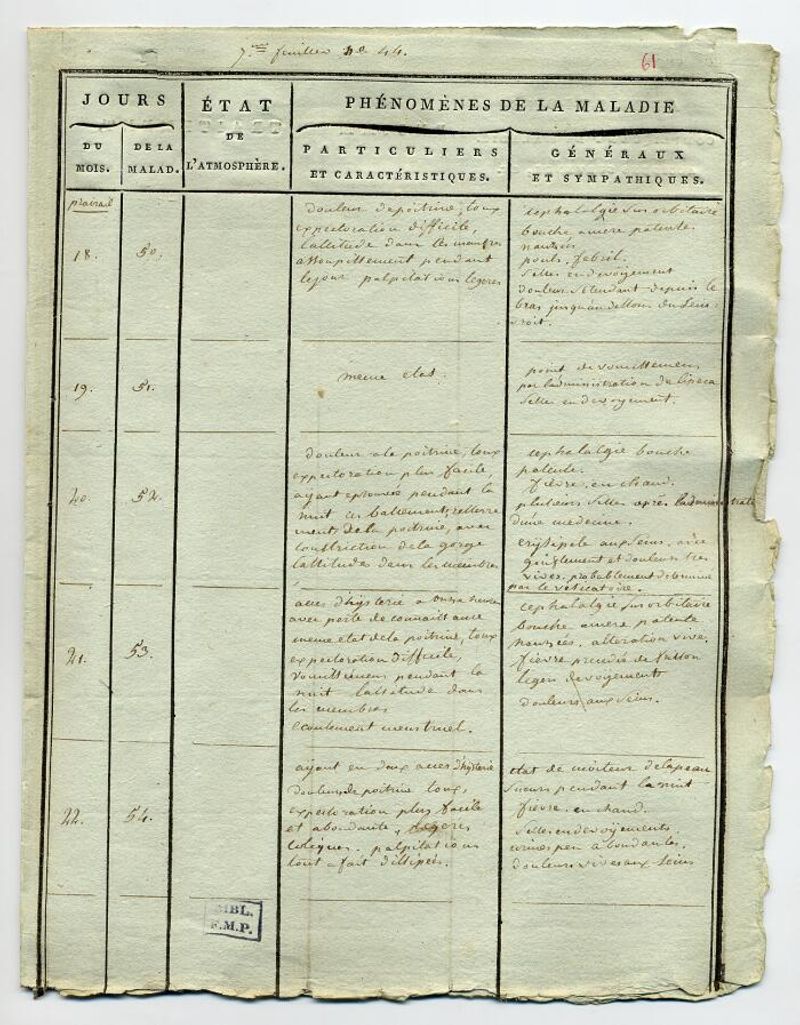 7.me feuillet de 44.
61
JOURS
ÉTAT
DE
L'ATMOSPHÈRE.
PHÉNOMÈNES DE LA MALADIE
DU
MOIS.
DE LA
MALAD.
PARTICULIERS
ET CARACTÉRISTIQUES.
GÉNÉRAUX
ET SYMPATHIQUES.
prairial
18.
50.
douleur de poitrine, toux
expectoration difficile,
lassitude dans les membres
assoupissement pendant
le jour palpitations legeres
cephalalgie sus orbitaire
bouche amere pateuse
nausées
pouls febril.
selles en devoyement
douleurs s'etendant depuis le
bras jusqu'au dessous du sein
droit.
19.
51.
meme etat.
point de vomissemens
par l'administration de l'ipeca
selles en devoyement.
20.
52.
douleur a la poitrine, toux
expectoration plus facile,
ayant eprouvée pendant la
nuit des battements, reserre
ments de la poitrine, avec
constriction de la gorge
lassitudes dans les membres
cephalalgie bouche
pateuse.
fievre, en chaud.
plusieurs selles après l'administrat
d'une medecine.
erysipele aux seins, avec
gonflement et douleurs tres
vives, probablement determiné
par le vesicatoire.
21.
53.
acces d'hysterie a onze heures
avec perte de connaissance
meme etat de la poitrine, toux
expectoration difficile,
vomissemens pendant la
nuit lassitude dans
les membres
ecoulement menstruel.
cephalalgie sus orbitaire
bouche amere pateuse
nausées, alteration vive.
fievre precedée de frisson
legers devoyements
douleurs aux seins.
22.
54.
ayant eu deux acces d'hysterie
douleurs de poitrine toux,
expectoration plus facile
et abondante, legeres
coliques. palpitations
tout a fait dissipées.
etat de moiteur de la peau
sueurs pendant la nuit
fievre, en chaud.
selles en devoyements.
urines peu abondantes.
douleurs vives aux seins
BIBL.
F.M.P.